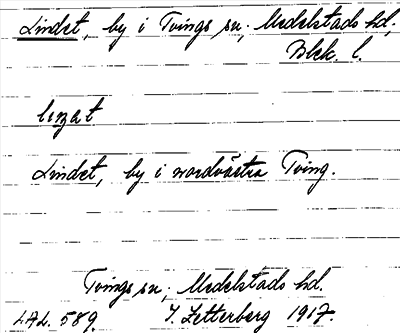 Lindet, by i Tvings sn, Medelstads hd,
Blek. l.
Lindet, by i nordvästra Tving.
Tvings sn, Medelstads hd.
LAL. 589. J. Zetterberg 1917.